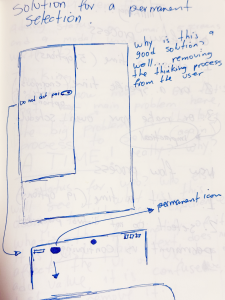 solution for a permanent
selection.
why is this a
good solution?
well... removing
the thinking process
from the user
permanent icon